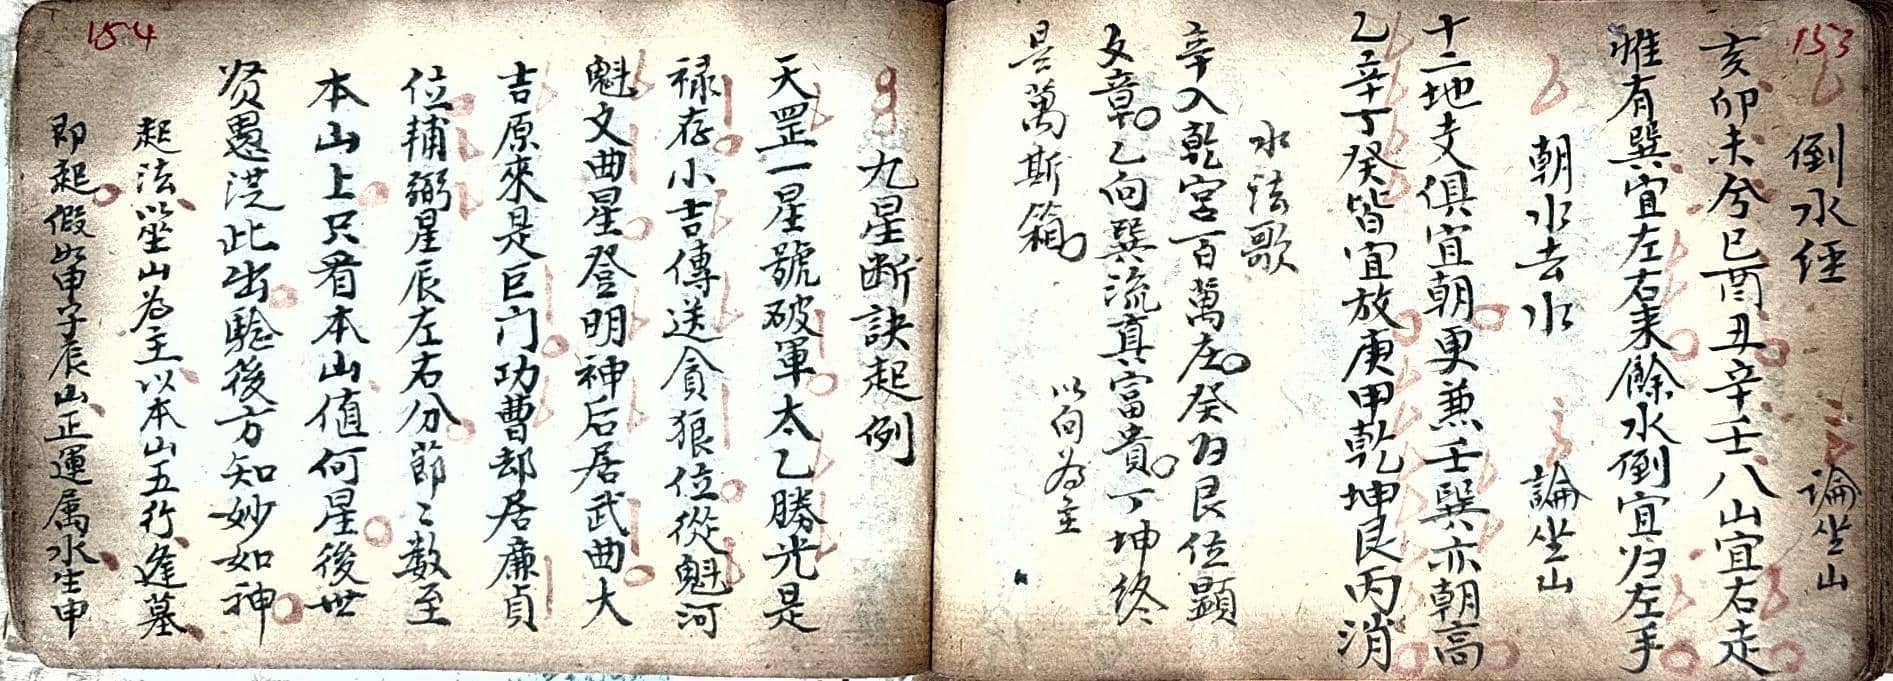 153
倒水経　　論坐山
亥卯未兮巳酉丑辛壬八山宜右走
惟有巽宜左右来餘水倒宜归左手
朝水去水　　論坐山
十二地支俱宜朝更兼壬巽亦朝高
乙辛丁癸皆宜放庚甲乾坤艮丙消
水法歌
辛入乾宮百萬庄癸归艮位顯
文章乙向巽流真富貴丁坤終
是萬斯箱　　以向為主
154
九星断訣起例
天罡一星號破軍太乙勝光是
禄存小吉傳送貪狼位從魁河
魁文曲星登明神后居武曲大
吉原來是巨门功曹却居廉貞
位輔弼星辰左右分節〻数至
本山上只看本山值何星後世
贤愚洪此出驗後方知妙如神
起法以坐山為主以本山五行逢墓
即起假如甲子辰山正運属水生申